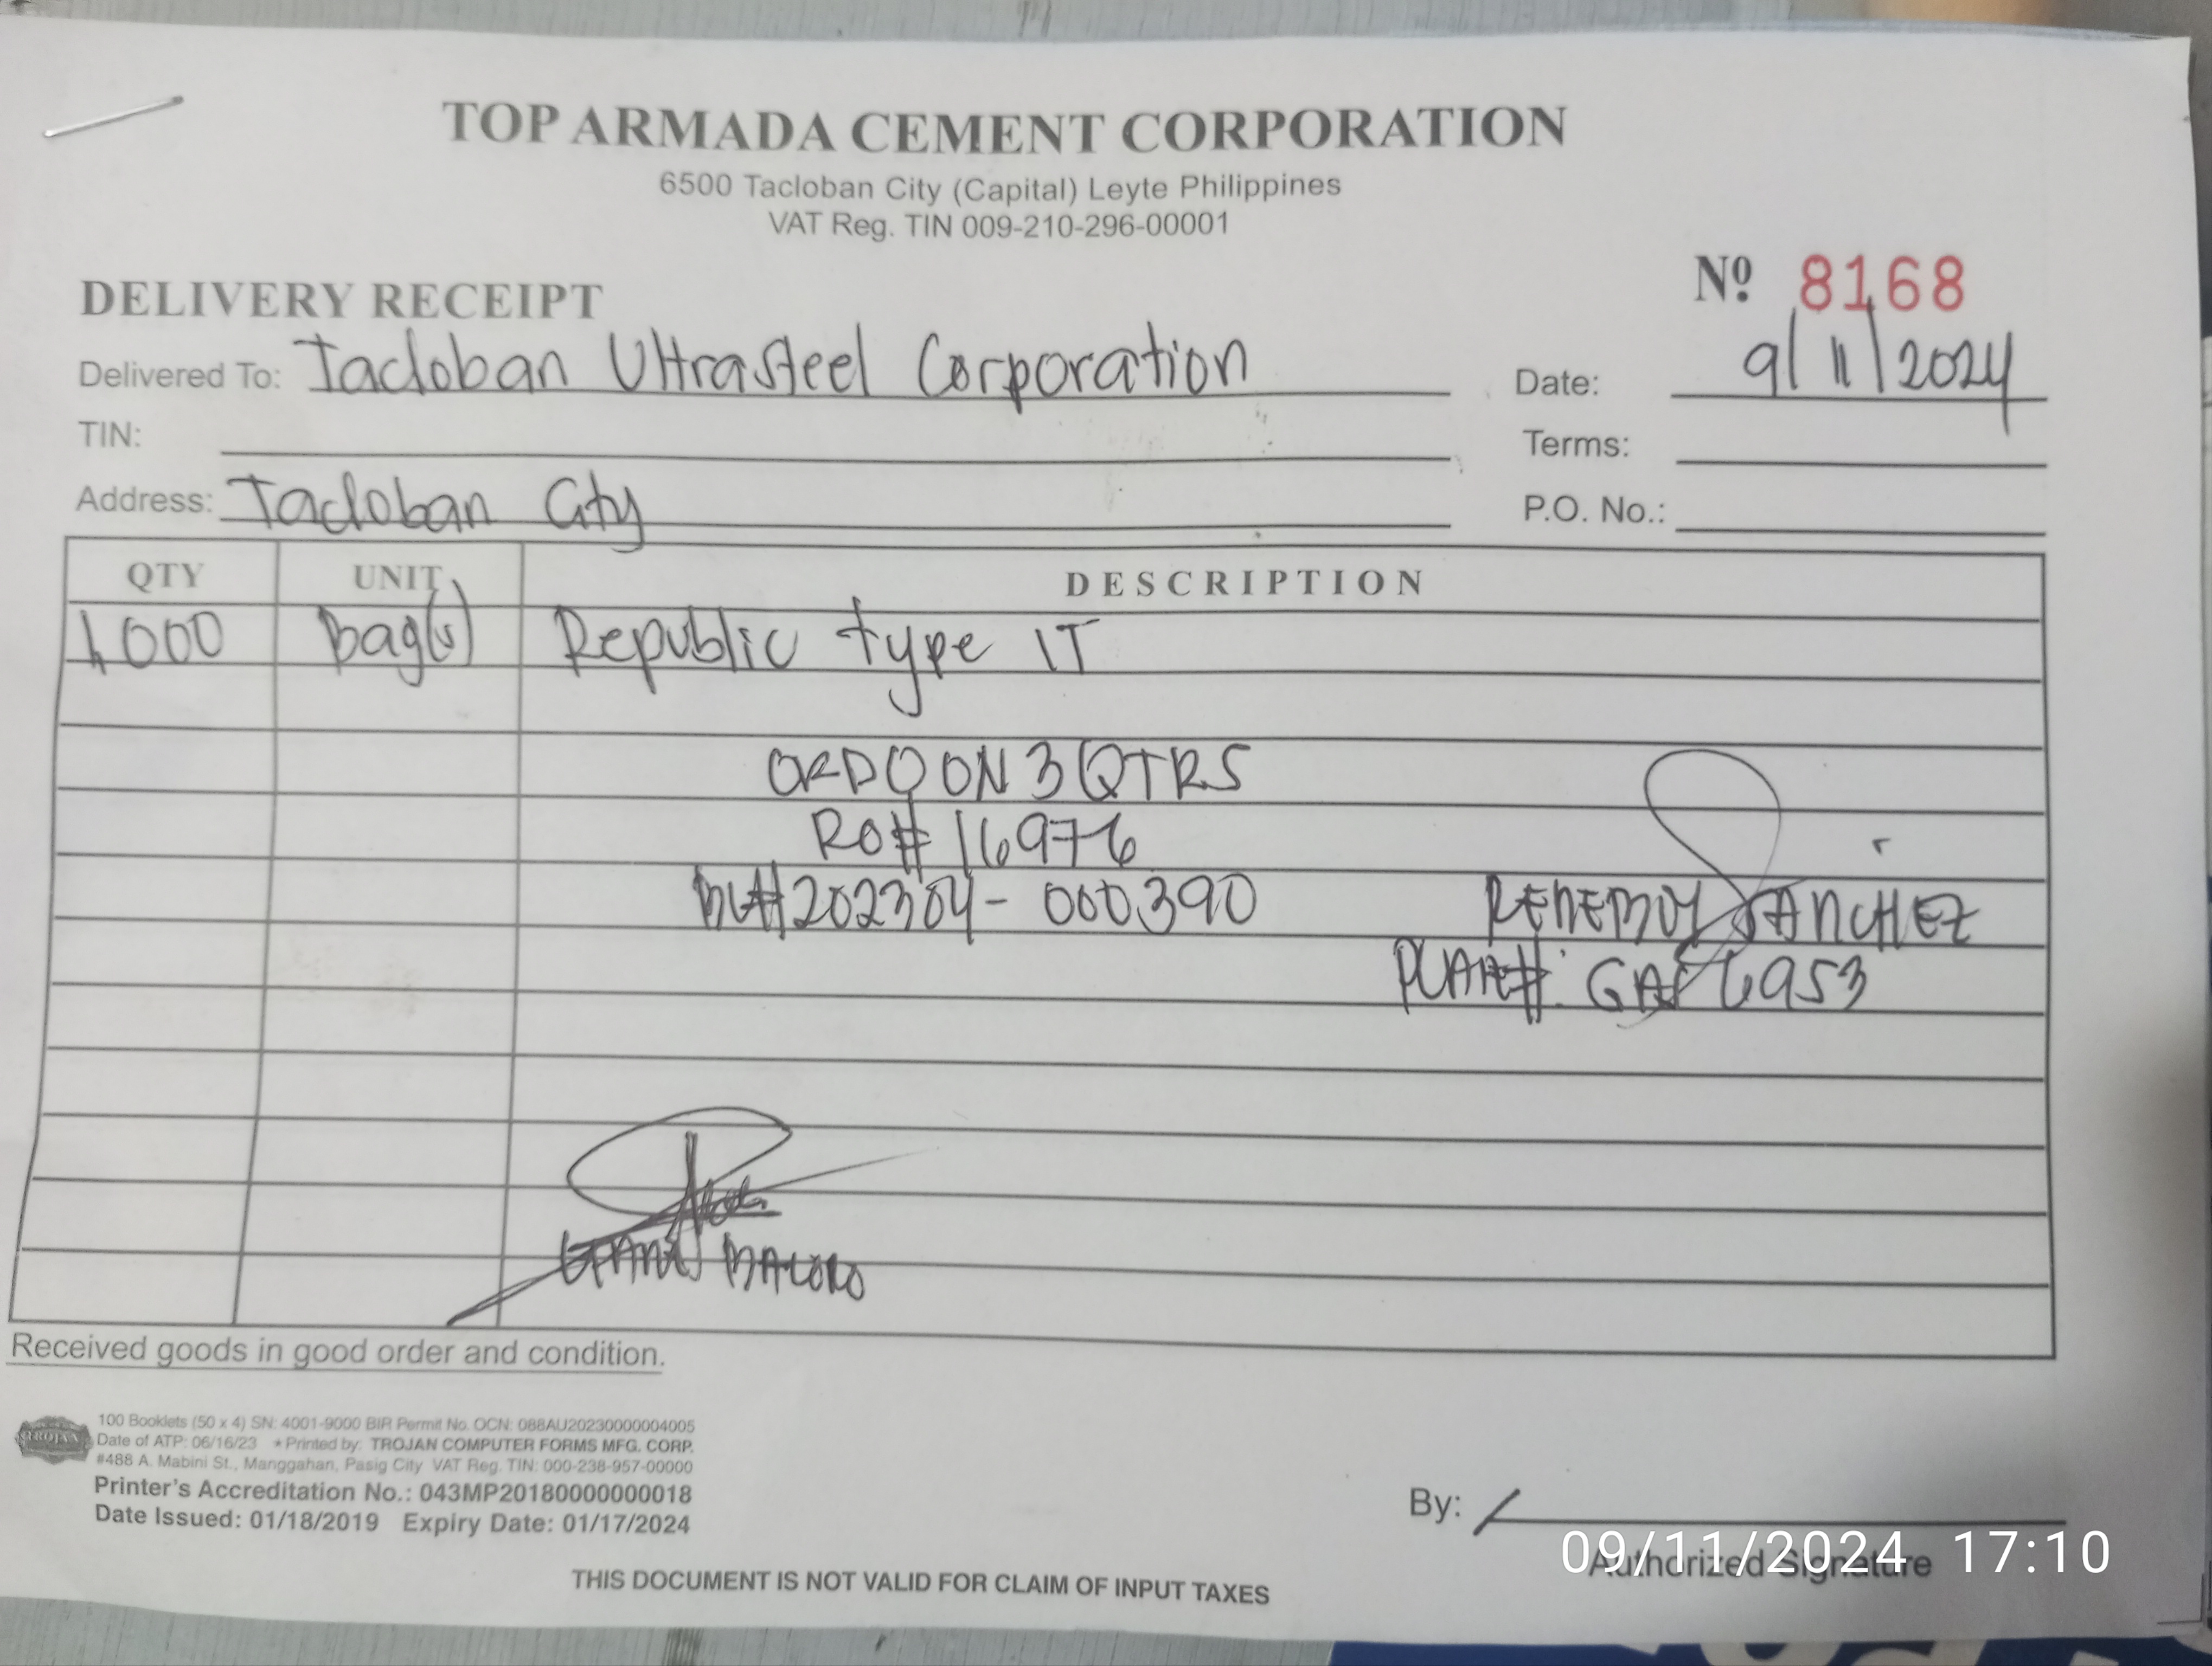 TOP ARMADA CEMENT CORPORATION
6500 Tacloban City (Capital) Leyte Philippines
VAT Reg. TIN 009-210-296-00001
Nº 8168
DELIVERY RECEIPT
Delivered To: Tacloban Ultrasteel Corporation
Date: 9/11/2024
TIN:
Terms:
Address: Tacloban City
P.O. No.:
QTY UNIT DESCRIPTION
1,000 Bag(s) Republic type 1T
ON 3 QTRS
RO# 16976
#202304-000390
SANCHEZ
6953
Received goods in good order and condition.
TROJAN
100 Booklets (50 x 4) SN: 4001-9000 BIR Permit No. OCN: 088AU20230000004005
Date of ATP: 06/16/23 * Printed by: TROJAN COMPUTER FORMS MFG. CORP.
#488 A. Mabini St., Manggahan, Pasig City VAT Reg. TIN: 000-238-957-00000
Printer's Accreditation No.: 043MP20180000000018
Date Issued: 01/18/2019 Expiry Date: 01/17/2024
By:
Authorized Signature
09/11/2024 17:10
THIS DOCUMENT IS NOT VALID FOR CLAIM OF INPUT TAXES